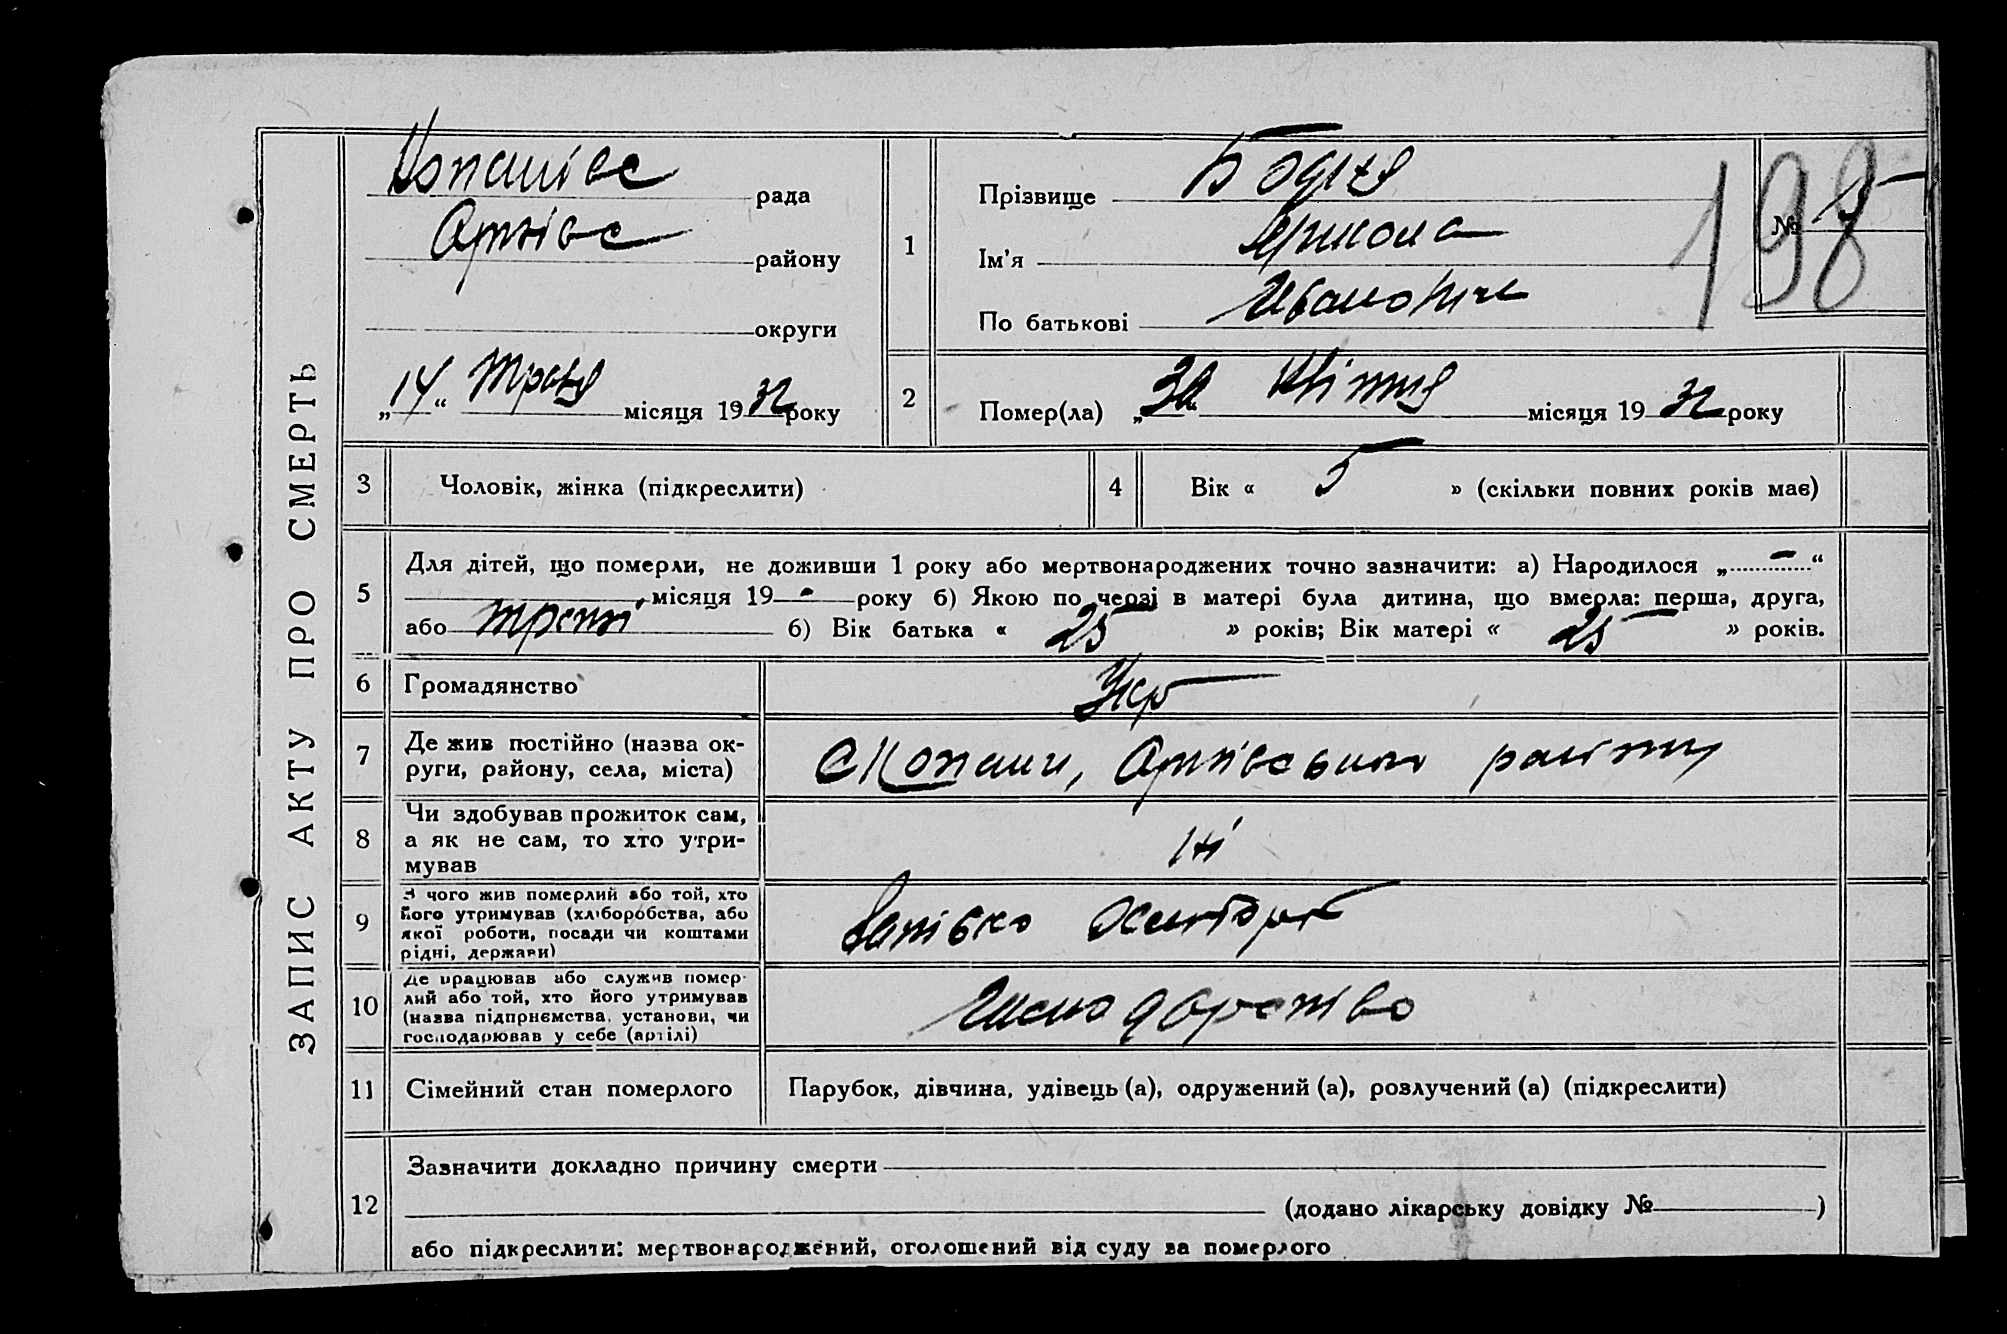 ЗАПИС АКТУ ПРО СМЕРТЬ
Копанівс рада
району
округи
„14“ Травня місяця 1932 року
1
Прізвище Бодня
Ім'я Микола
По батькові Иванович
№ 5
198
2
Помер(ла) „30“ Квітня місяця 1932 року
3 Чоловік, жінка (підкреслити)
4 Вік « 5 » (скільки повних років має)
5 Для дітей, що померли, не доживши 1 року або мертвонароджених точно зазначити: а) Народилося „ - “
місяця 19 - року б) Якою по черзі в матері була дитина, що вмерла: перша, друга,
або 6) Вік батька « 25 » років; Вік матері « 25 » років.
6 Громадянство Укр
7 Де жив постійно (назва ок-
руги, району, села, міста) с Копани, району
8 Чи здобував прожиток сам,
а як не сам, то хто утри-
мував ні
9 З чого жив померлий або той, хто
його утримував (хліборобства, або
якої роботи, посади чи коштами
рідні, держави) батько
10 Де працював або служив помер-
лий або той, хто його утримував
(назва підприємства, установи, чи
господарював у себе (артілі)
11 Сімейний стан померлого Парубок, дівчина, удівець (а), одружений (а), розлучений (а) (підкреслити)
12 Зазначити докладно причину смерти
(додано лікарську довідку № )
або підкреслити: мертвонароджений, оголошений від суду за померлого